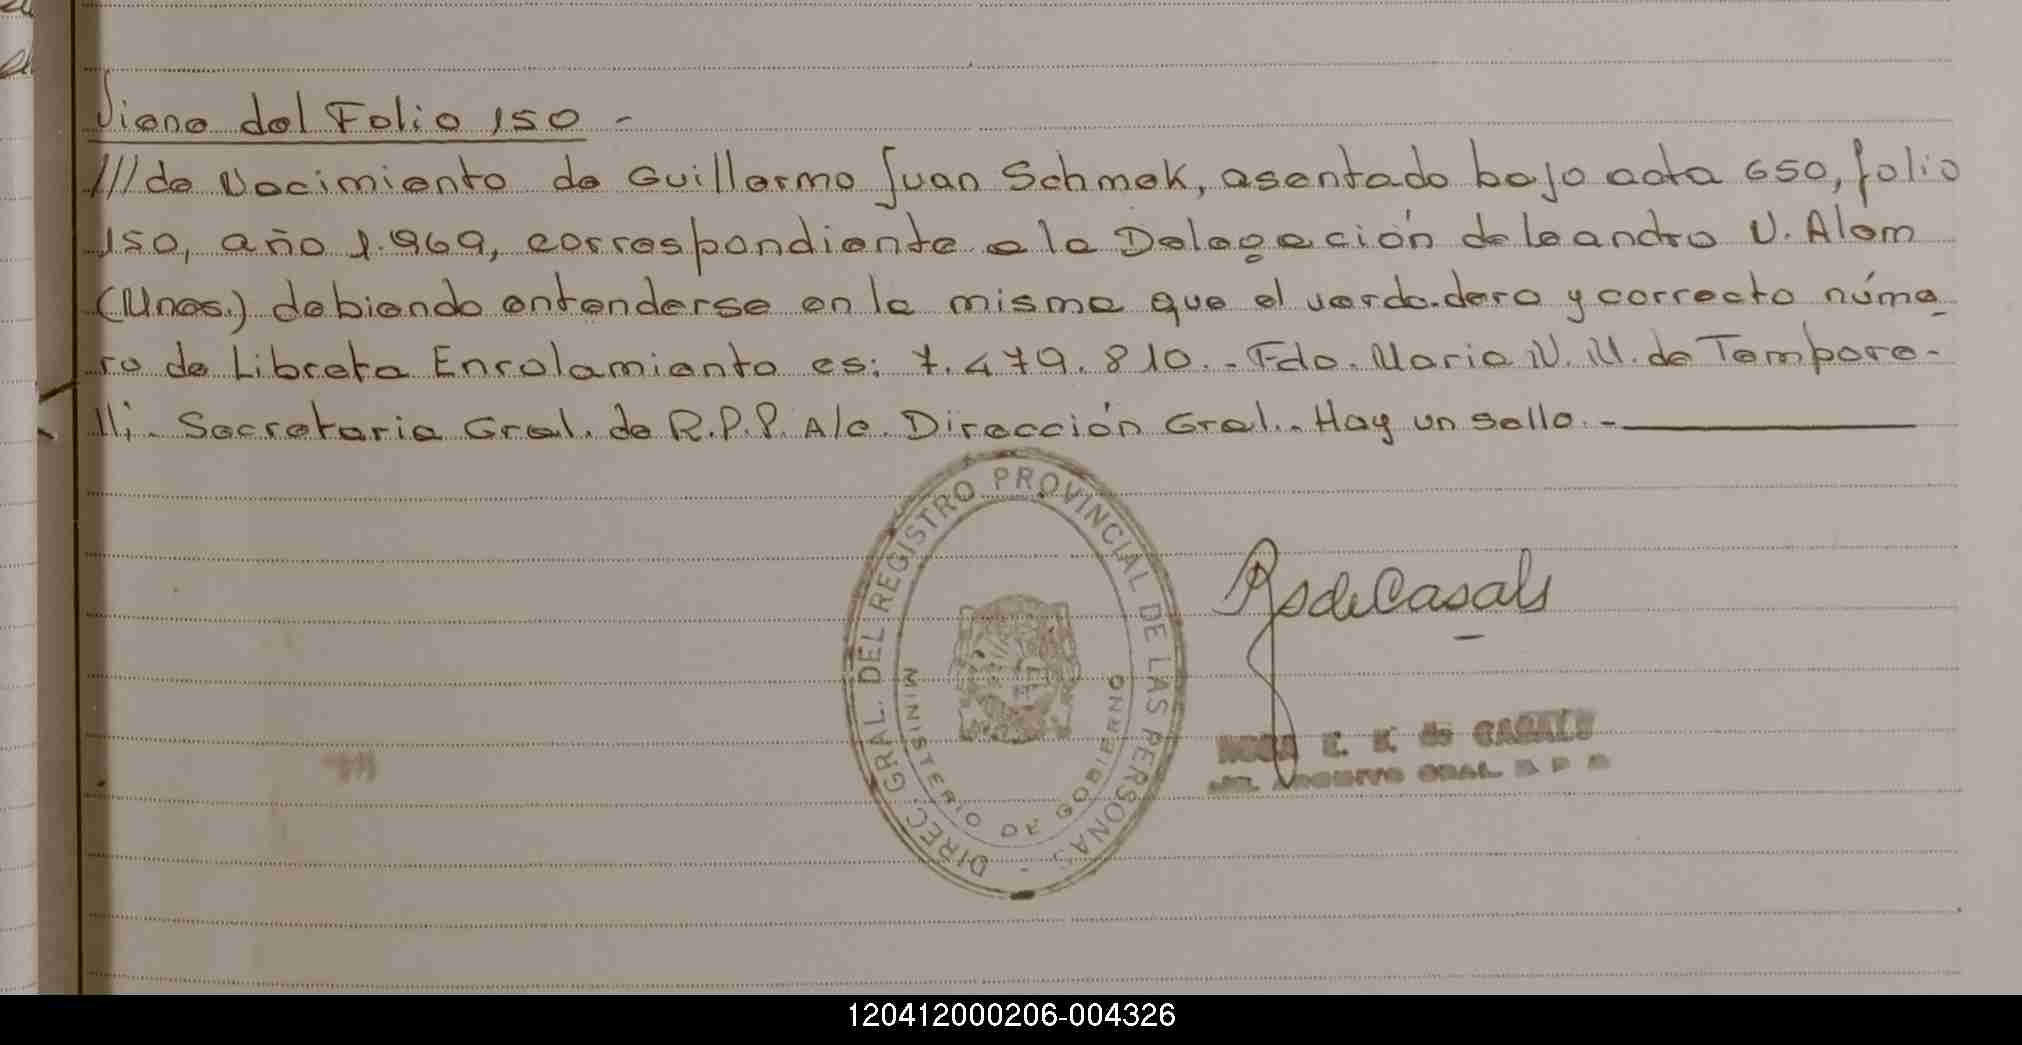 Viene del Folio 150 -
///de Nacimiento de Guillermo Juan Schmek, asentado bajo acta 650, folio
150, año 1.969, correspondiente a la Delegación de Leandro N. Alem
(Mnes.) debiendo entenderse en la misma que el verdadero y correcto núme
ro de Libreta Enrolamiento es: 7.479.810.- Fdo. Maria N. M. de Tempore-
lli. Secretaria Gral. de R.P.P. A/c. Dirección Gral.. Hay un sello. -
DIREC. GRAL. DEL REGISTRO PROVINCIAL DE LAS PERSONAS -
MINISTERIO DE GOBIERNO
RsdeCasals
ROSA E. de CASALS
ARCHIVO GRAL. R P P
120412000206-004326